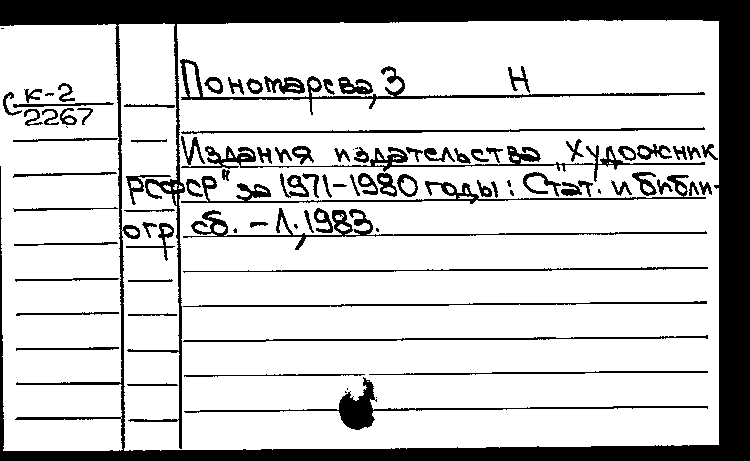 Пономарева, З Н
С К-2
2267
Издания издательства „Художник
РСФСР" за 1971-1980 годы: Стат. и библи-
огр. сб. - Л., 1983.